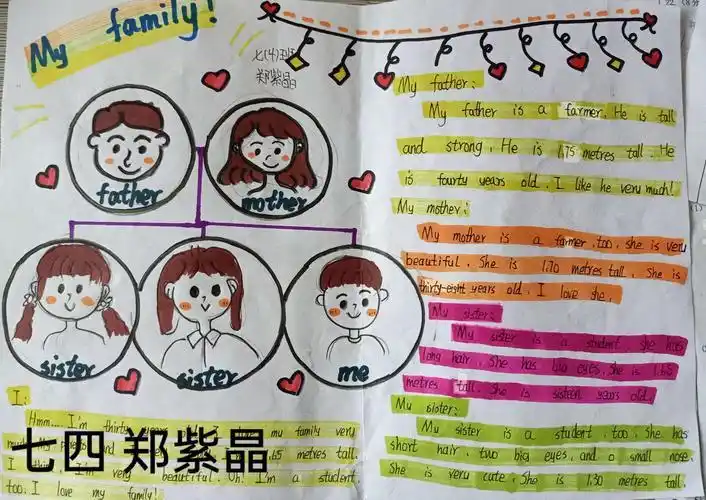 My family!
七(4)班
郑紫晶
father
mother
sister
sister
me
I:
Hmm... I'm thirty years my family very
65 metres tall.
I I'm very beautiful. Oh! I'm a student,
too. I love my family!
七四 郑紫晶
My father:
My father is a farmer. He is tall
and strong. He is 1.75 metres tall. He
is fourty years old. I like he very much!
My mother:
My mother is a farmer, too. she is very
beautiful. She is 1.70 metres tall. She is
thirty-eight years old. I love she.
My sister:
My sister is a student. she has
long hair. She has big eyes. She is 1.65
metres tall. She is sixteen years old.
My sister:
My sister is a student, too. She has
short hair, two big eyes, and a small nose.
She is very cute. She is 1.30 metres tall.